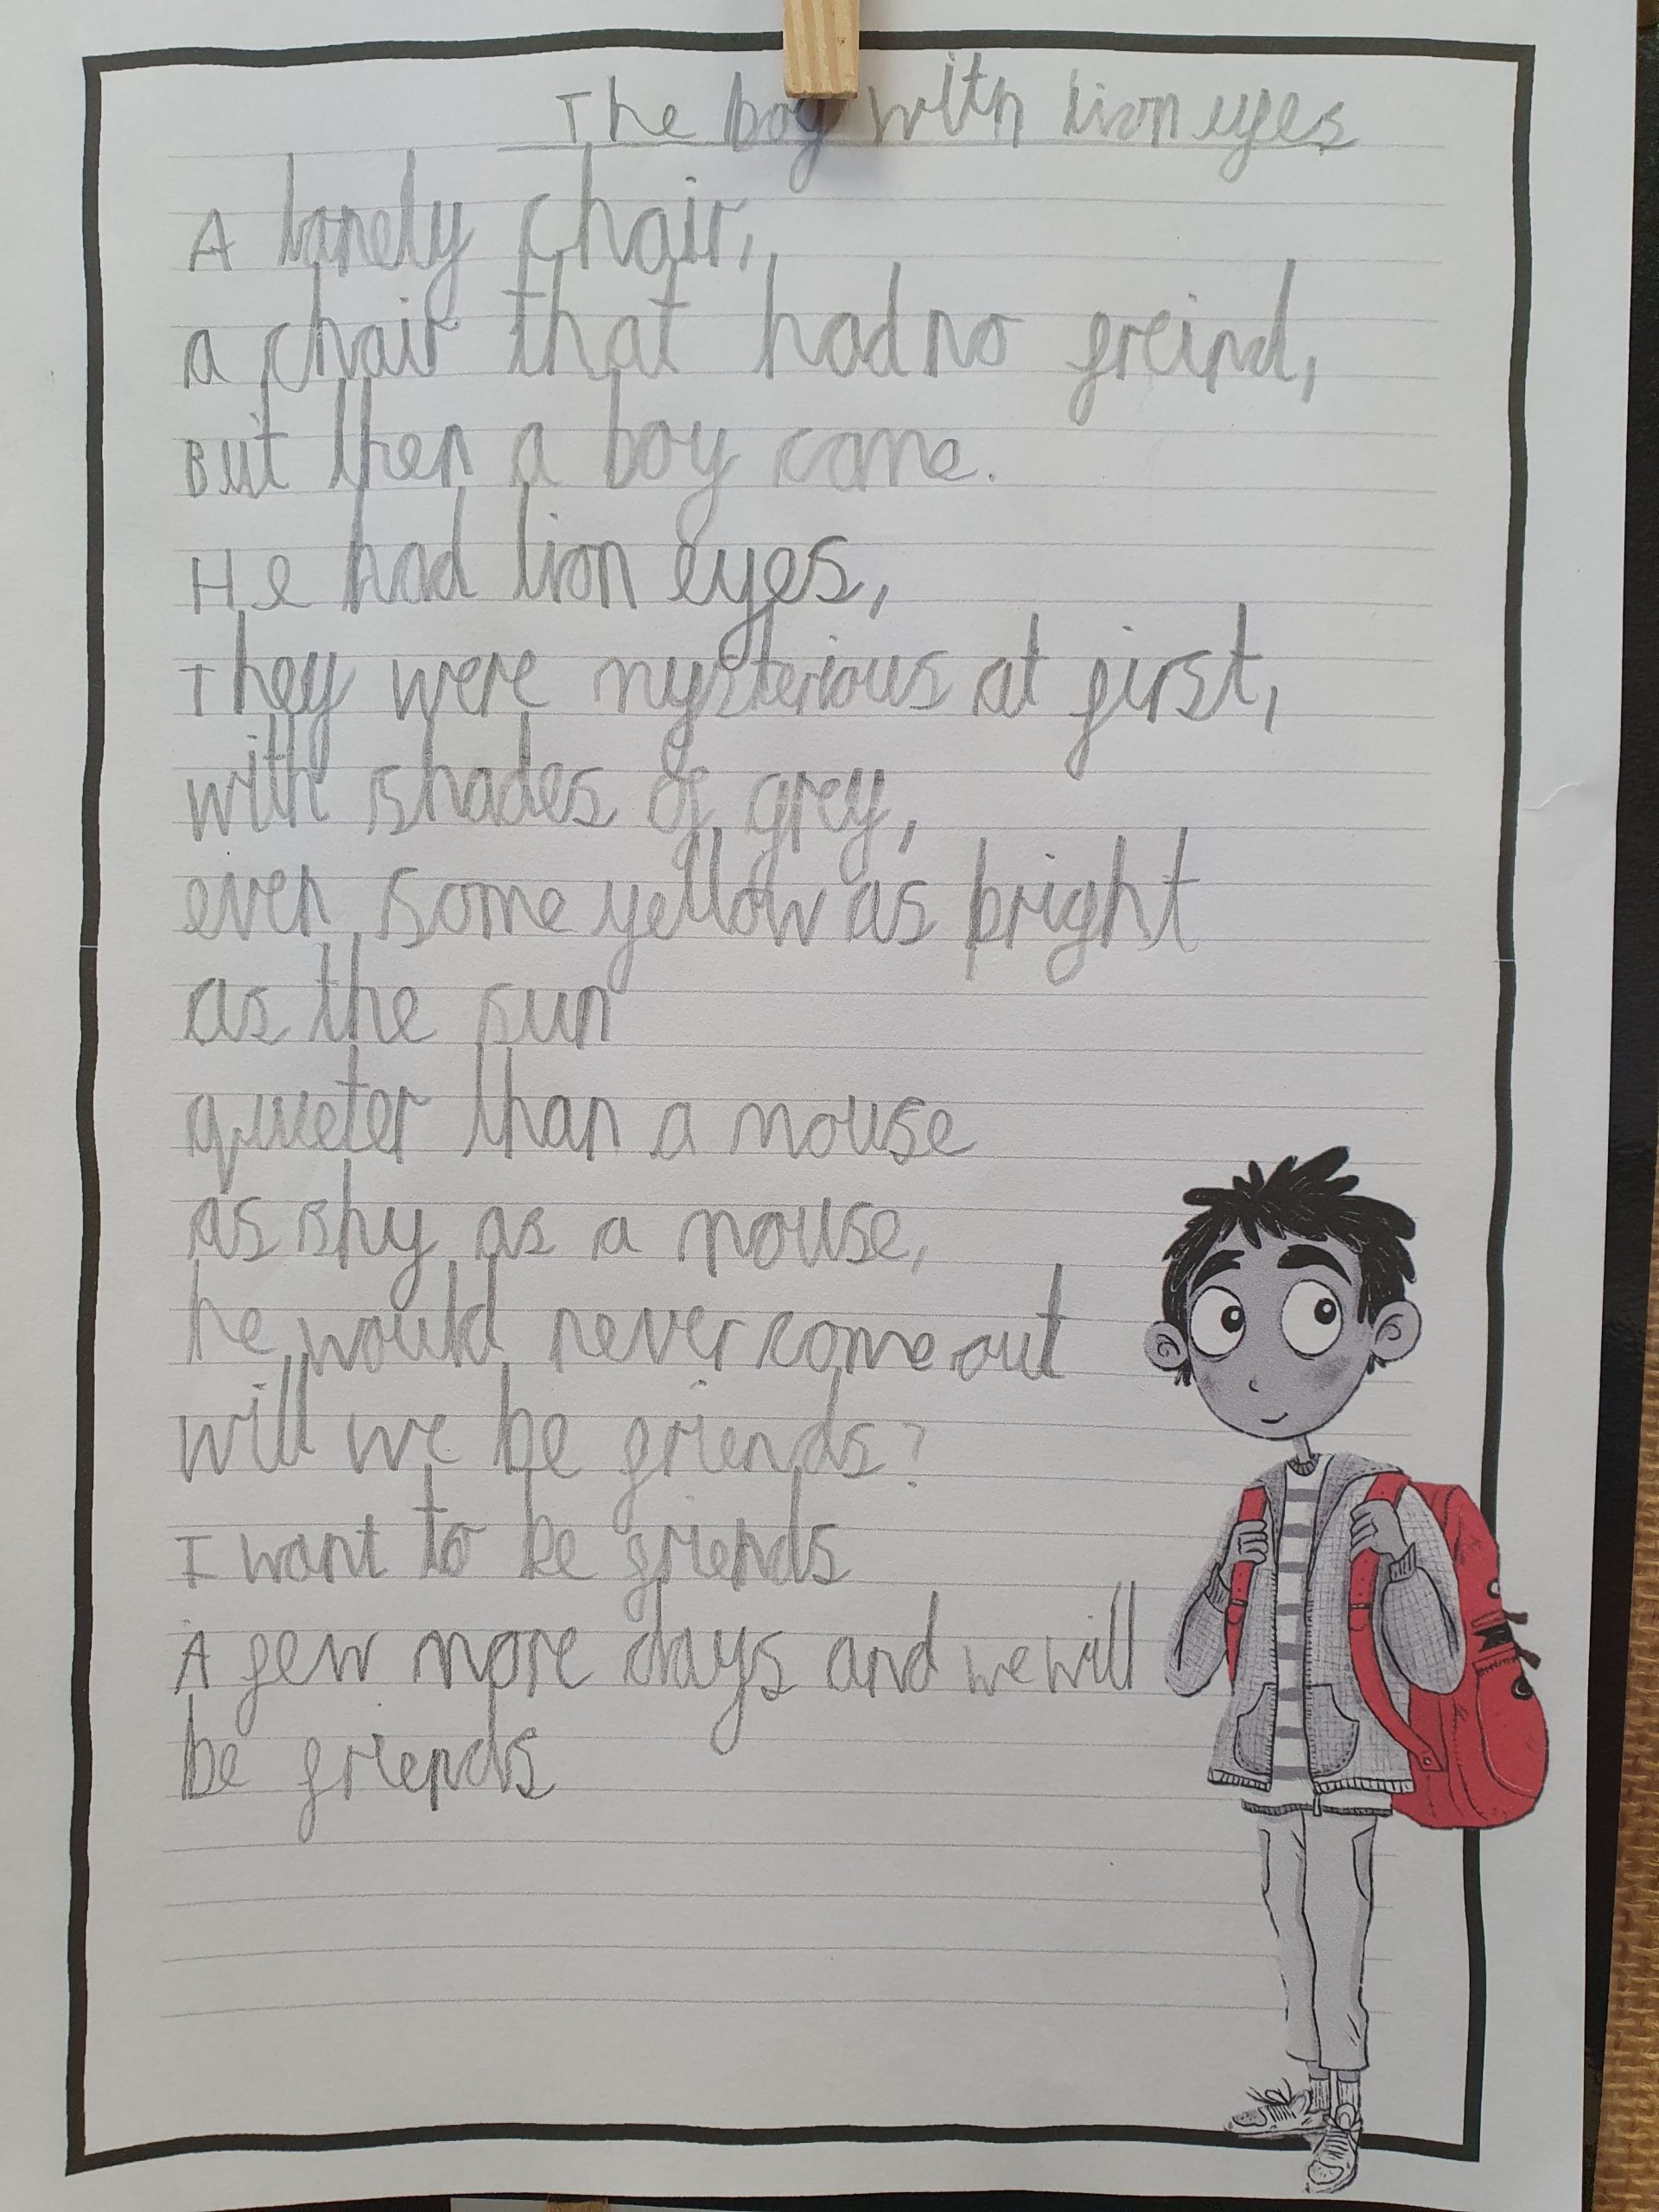 The boy with lion eyes
A lonely chair,
a chair that had no freind,
But then a boy came.
He had lion eyes,
They were mysterious at first,
with shades of grey,
even some yellow as bright
as the sun
quieter than a mouse
as shy as a mouse,
he would never come out
will we be friends?
I want to be friends
A few more days and we will
be friends